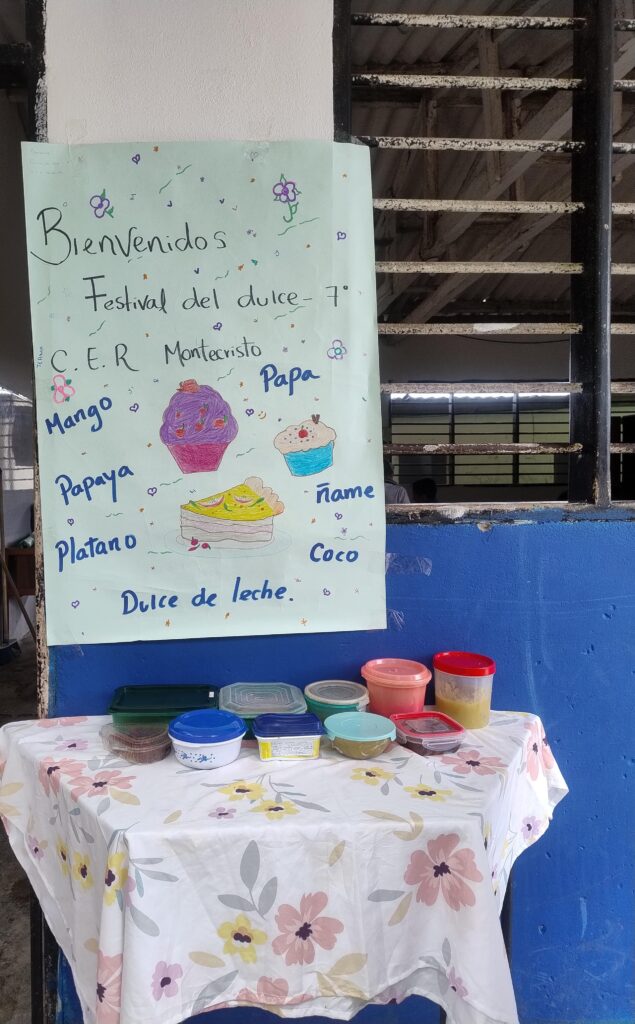 Bienvenidos
Festival del dulce - 7°
C.E.R Montecristo
Mango
Papa
Papaya
ñame
Platano
Coco
Dulce de leche.